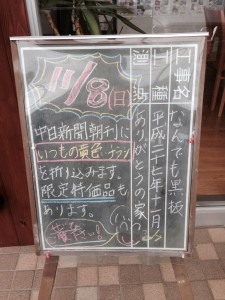 工事名 なんでも黒板
工種 平成二十七年十一月
測点 ありがとうの家
11/8(日)
中日新聞朝刊に
いつもの黄色チラシ
を折り込みます。
限定特価品も
あります。